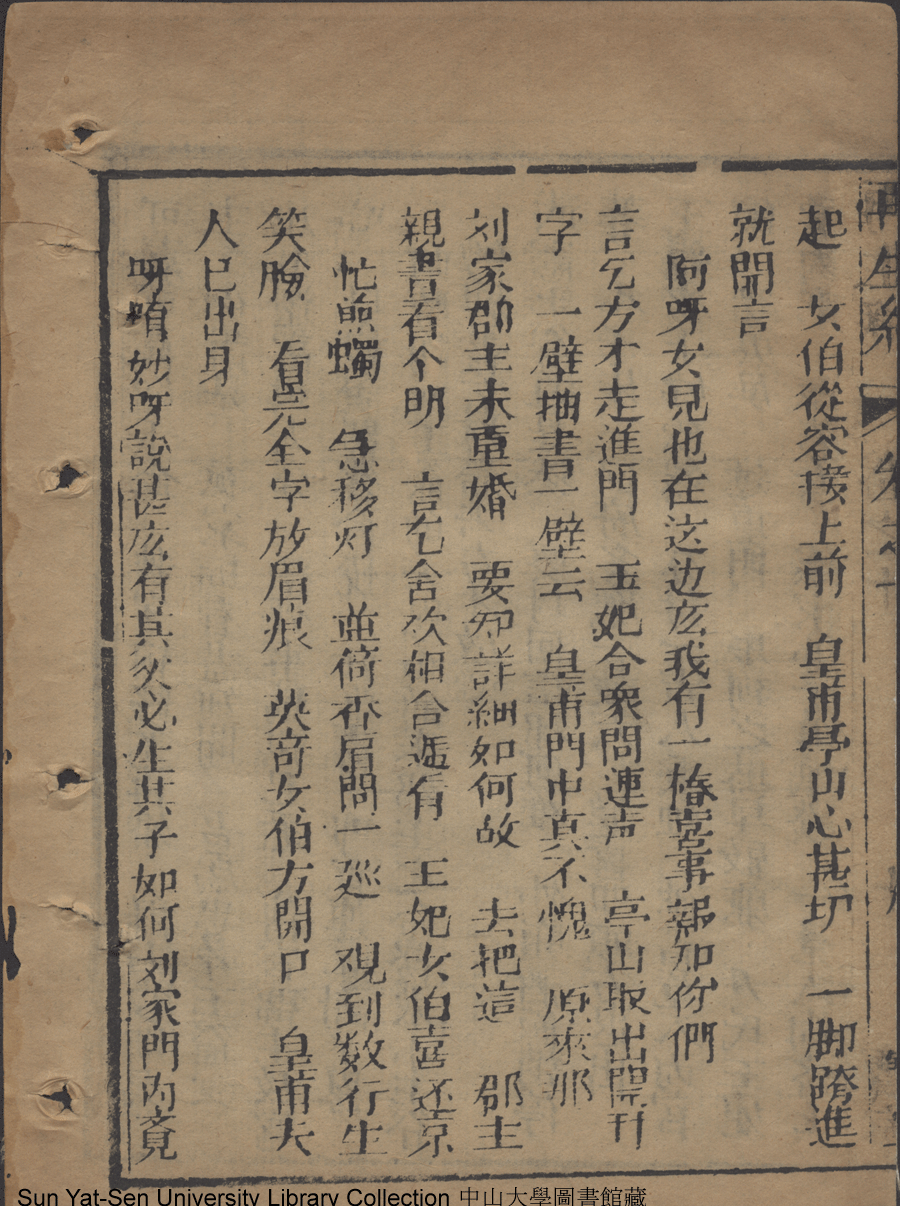 再生緣 卷之十
起　女伯從容接上前　皇甫亭山心甚切　一脚跨進
就開言
阿呀女兒也在这边庅我有一樁喜事報知你們
言乞方才走進門　王妃合衆問連声　亭山取出開刊
字　一壁抽書一壁云　皇甫門中真不愧　原來那
刘家郡主未重婚　要知詳細如何故　去把這　郡主
親書看个明　言乞舍欢相合遞有　王妃女伯喜还京
忙煎蠋　急移灯　並倚香肩問一廵　观到数行生
笑臉　看完全字放眉痕　英奇女伯方開口　皇甫夫
人已出身
呀唷妙呀說甚庅有其父必生其子如何刘家門内竟
Sun Yat-Sen University Library Collection 中山大學圖書館藏